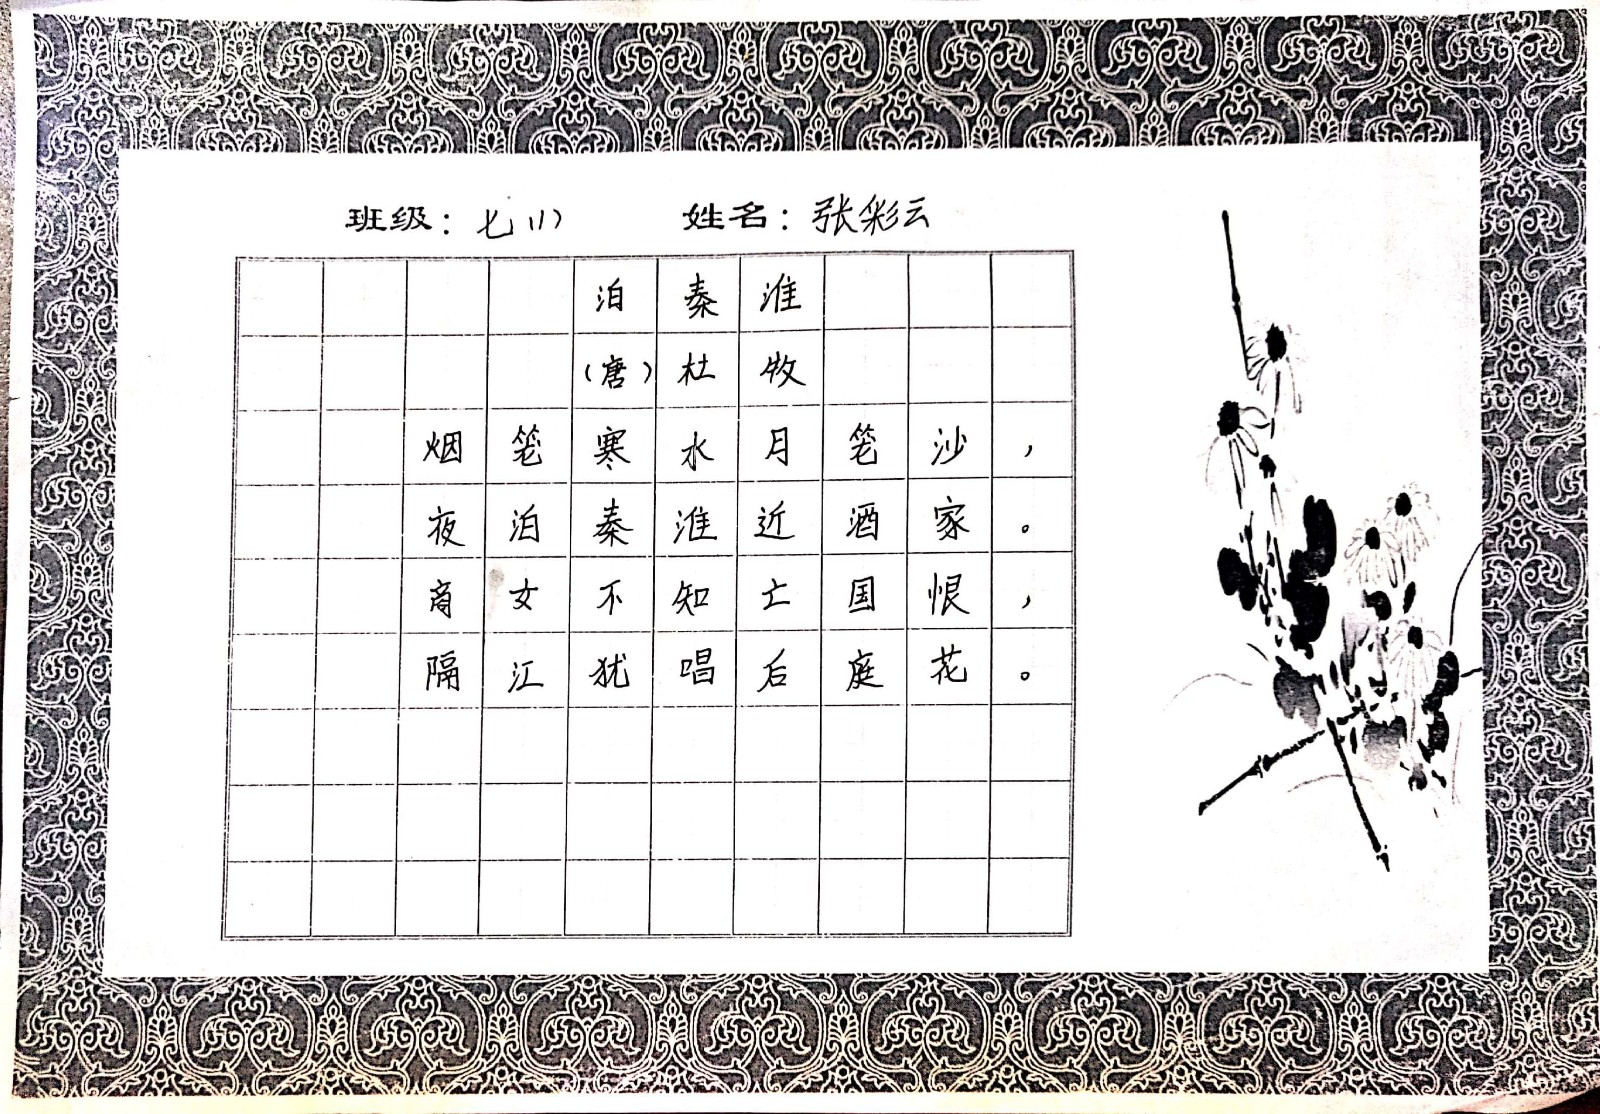 班级：七（1） 姓名：张彩云
泊秦淮
（唐）杜牧
烟笼寒水月笼沙，
夜泊秦淮近酒家。
商女不知亡国恨，
隔江犹唱后庭花。